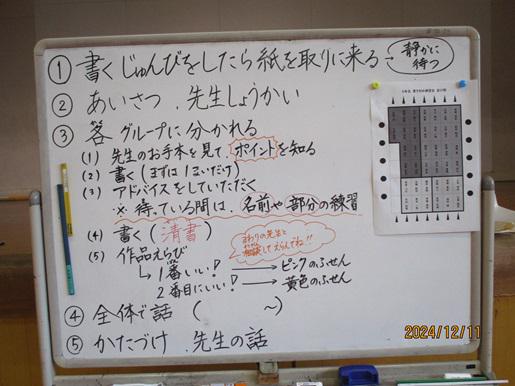 ① 書くじゅんびをしたら紙を取りに来る→ 静かに待つ
② あいさつ、先生しょうかい
③ 各グループに分かれる
(1) 先生のお手本を見て、ポイントを知る
(2) 書く(まずは1まいだけ)
(3) アドバイスをしていただく
※ 待っている間は、名前や部分の練習
(4) 書く(清書)
(5) 作品えらび
まわりの先生と
相談してえらんでね!!
↳ 1番いい! → ピンクのふせん
2番目にいい! → 黄色のふせん
④ 全体で話 ( 〜 )
⑤ かたづけ 先生の話
2024/12/11